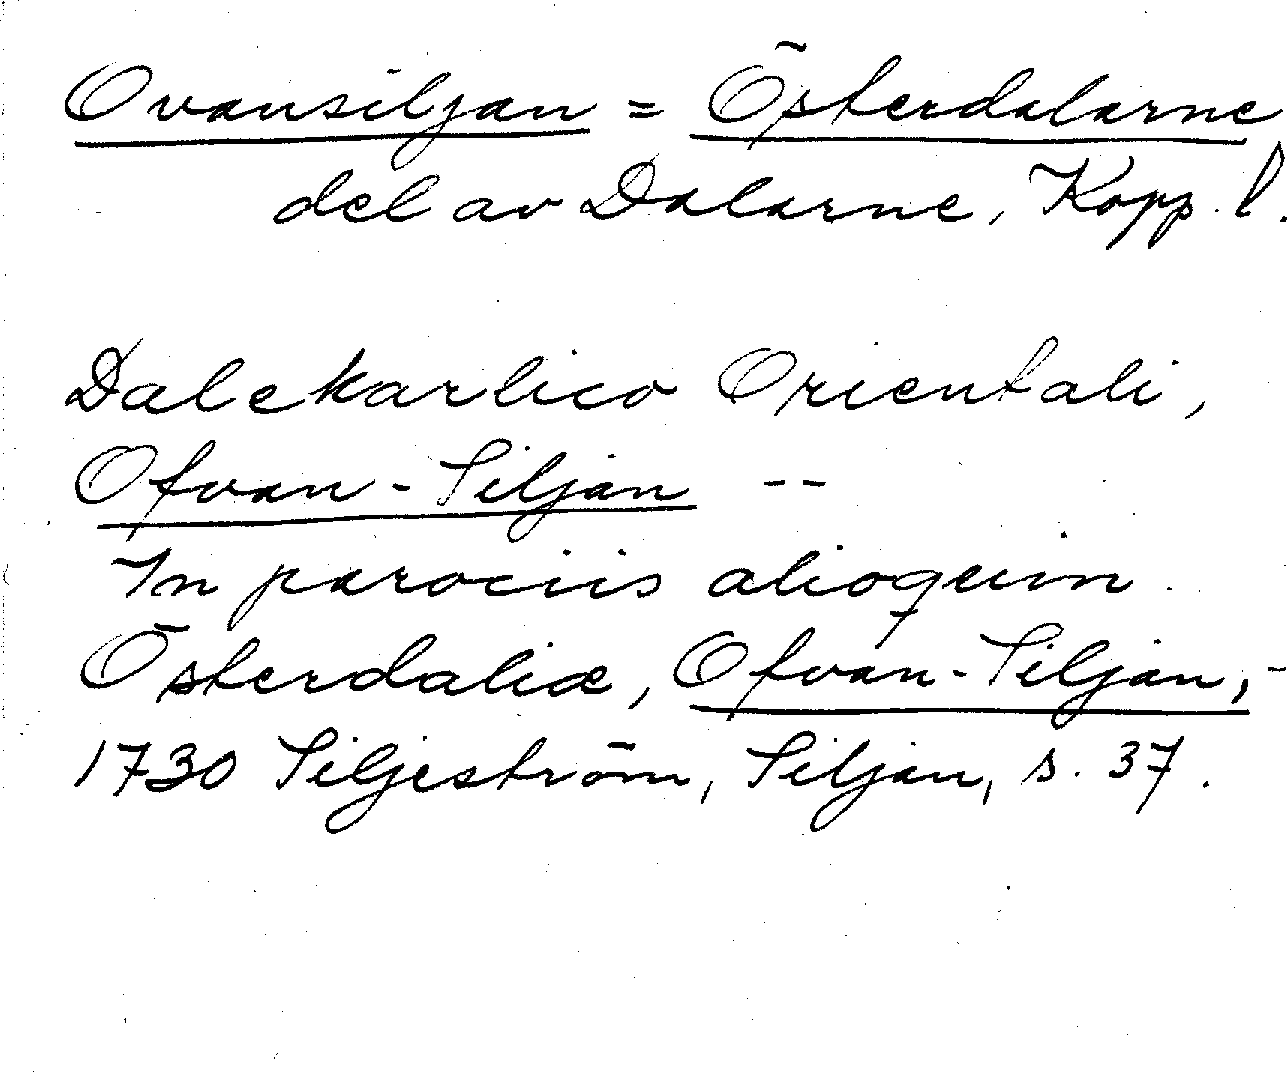 Ovansiljan = Österdalarne
del av Dalarne, Kopp. l.
Dalekarlico Orientali,
Ofvan-Siljan --
In parociis alioquin
Österdaliæ, Ofvan-Siljan, -
1730 Siljeström, Siljan, s. 37.